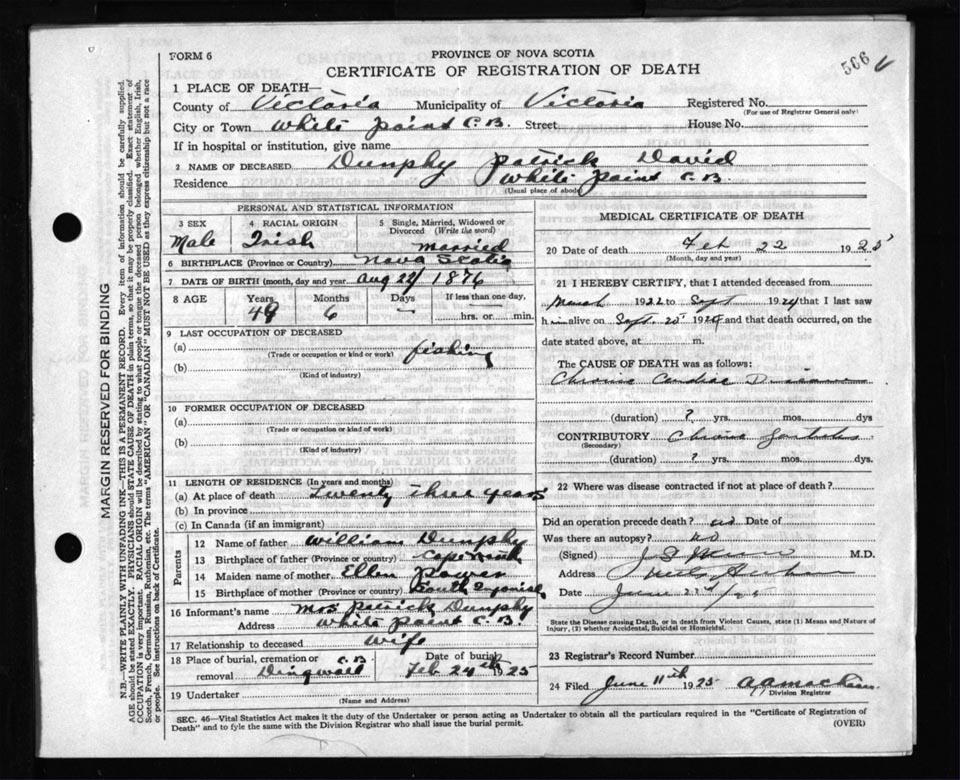 566
FORM 6
PROVINCE OF NOVA SCOTIA
CERTIFICATE OF REGISTRATION OF DEATH
1 PLACE OF DEATH—
County of Victoria Municipality of Victoria Registered No.
(For use of Registrar General only)
City or Town White point C.B. Street House No.
If in hospital or institution, give name
2 NAME OF DECEASED Dunphy Patrick David
Residence White Point C.B.
(Usual place of abode)
PERSONAL AND STATISTICAL INFORMATION
3 SEX 4 RACIAL ORIGIN 5 Single, Married, Widowed or Divorced (Write the word)
Male Irish married
6 BIRTHPLACE (Province or Country) Nova Scotia
7 DATE OF BIRTH (month, day and year) Aug 22 1876
8 AGE Years Months Days If less than one day,
48 6 hrs. or min.
9 LAST OCCUPATION OF DECEASED
(a) fishing
(Trade or occupation or kind or work)
(b)
(Kind of industry)
10 FORMER OCCUPATION OF DECEASED
(a)
(Trade or occupation or kind of work)
(b)
(Kind of industry)
11 LENGTH OF RESIDENCE (In years and months)
(a) At place of death Twenty three years
(b) In province
(c) In Canada (if an immigrant)
Parents
12 Name of father William Dunphy
13 Birthplace of father (Province or country) Cape North
14 Maiden name of mother Ellen Power
15 Birthplace of mother (Province or country) South
16 Informant's name Mrs Patrick Dunphy
Address White Point C.B.
17 Relationship to deceased Wife
18 Place of burial, cremation or removal Dingwall C.B Date of burial Feb 24th 1925
19 Undertaker
(Name and Address)
MEDICAL CERTIFICATE OF DEATH
20 Date of death Feb 22 1925
(Month, day and year)
21 I HEREBY CERTIFY, that I attended deceased from
March 1922 to Sept 1924 that I last saw
h im alive on Sept. 20 1924 and that death occurred, on
date stated above, at m.
The CAUSE OF DEATH was as follows:
Chronic Cardiac
(duration) ? yrs. mos. dys
CONTRIBUTORY Chronic
(Secondary)
(duration) ? yrs. mos. dys.
22 Where was disease contracted if not at place of death?
Did an operation precede death? no Date of
Was there an autopsy? no
(Signed) M.D.
Address
Date June
State the Disease causing Death, or in death from Violent Causes, state (1) Means and Nature of Injury, (2) whether Accidental, Suicidal or Homicidal.
23 Registrar's Record Number
24 Filed June 11th 1925
Division Registrar
SEC. 46—Vital Statistics Act makes it the duty of the Undertaker or person acting as Undertaker to obtain all the particulars required in the "Certificate of Registration of
Death" and to fyle the same with the Division Registrar who shall issue the burial permit. (OVER)
MARGIN RESERVED FOR BINDING
N.B.—WRITE PLAINLY WITH UNFADING INK—THIS IS A PERMANENT RECORD. Every item of information should be carefully supplied.
AGE should be stated EXACTLY. PHYSICIANS should STATE CAUSE OF DEATH in plain terms, so that it may be properly classified. Exact statement of
OCCUPATION is very important. RACIAL ORIGIN will be described by stating to what people or tongue the deceased person belonged whether English, Irish,
Scotch, French, German, Russian, Ruthenian, etc. The terms "AMERICAN" OR "CANADIAN" MUST NOT BE USED as they express citizenship but not a race
or people. See instructions on back of Certificate.